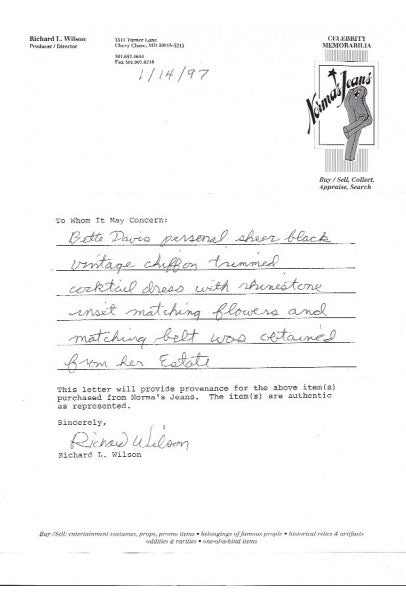 Richard L. Wilson
Producer / Director
3511 Turner Lane
Chevy Chase, MD 20815-3213
301.652.4644
Fax 301.907.0216
1/14/97
CELEBRITY
MEMORABILIA
Norma's Jeans
Buy / Sell, Collect,
Appraise, Search
To Whom It May Concern:
Bette Davis personal sheer black
vintage chiffon trimmed
cocktail dress with rhinestone
inset matching flowers and
matching belt was obtained
from her Estate
This letter will provide provenance for the above item(s)
purchased from Norma's Jeans. The item(s) are authentic
as represented.
Sincerely,
Richard Wilson
Richard L. Wilson
Buy /Sell: entertainment costumes, props, promo items • belongings of famous people • historical relics & artifacts
oddities & rarities • one-of-a-kind items